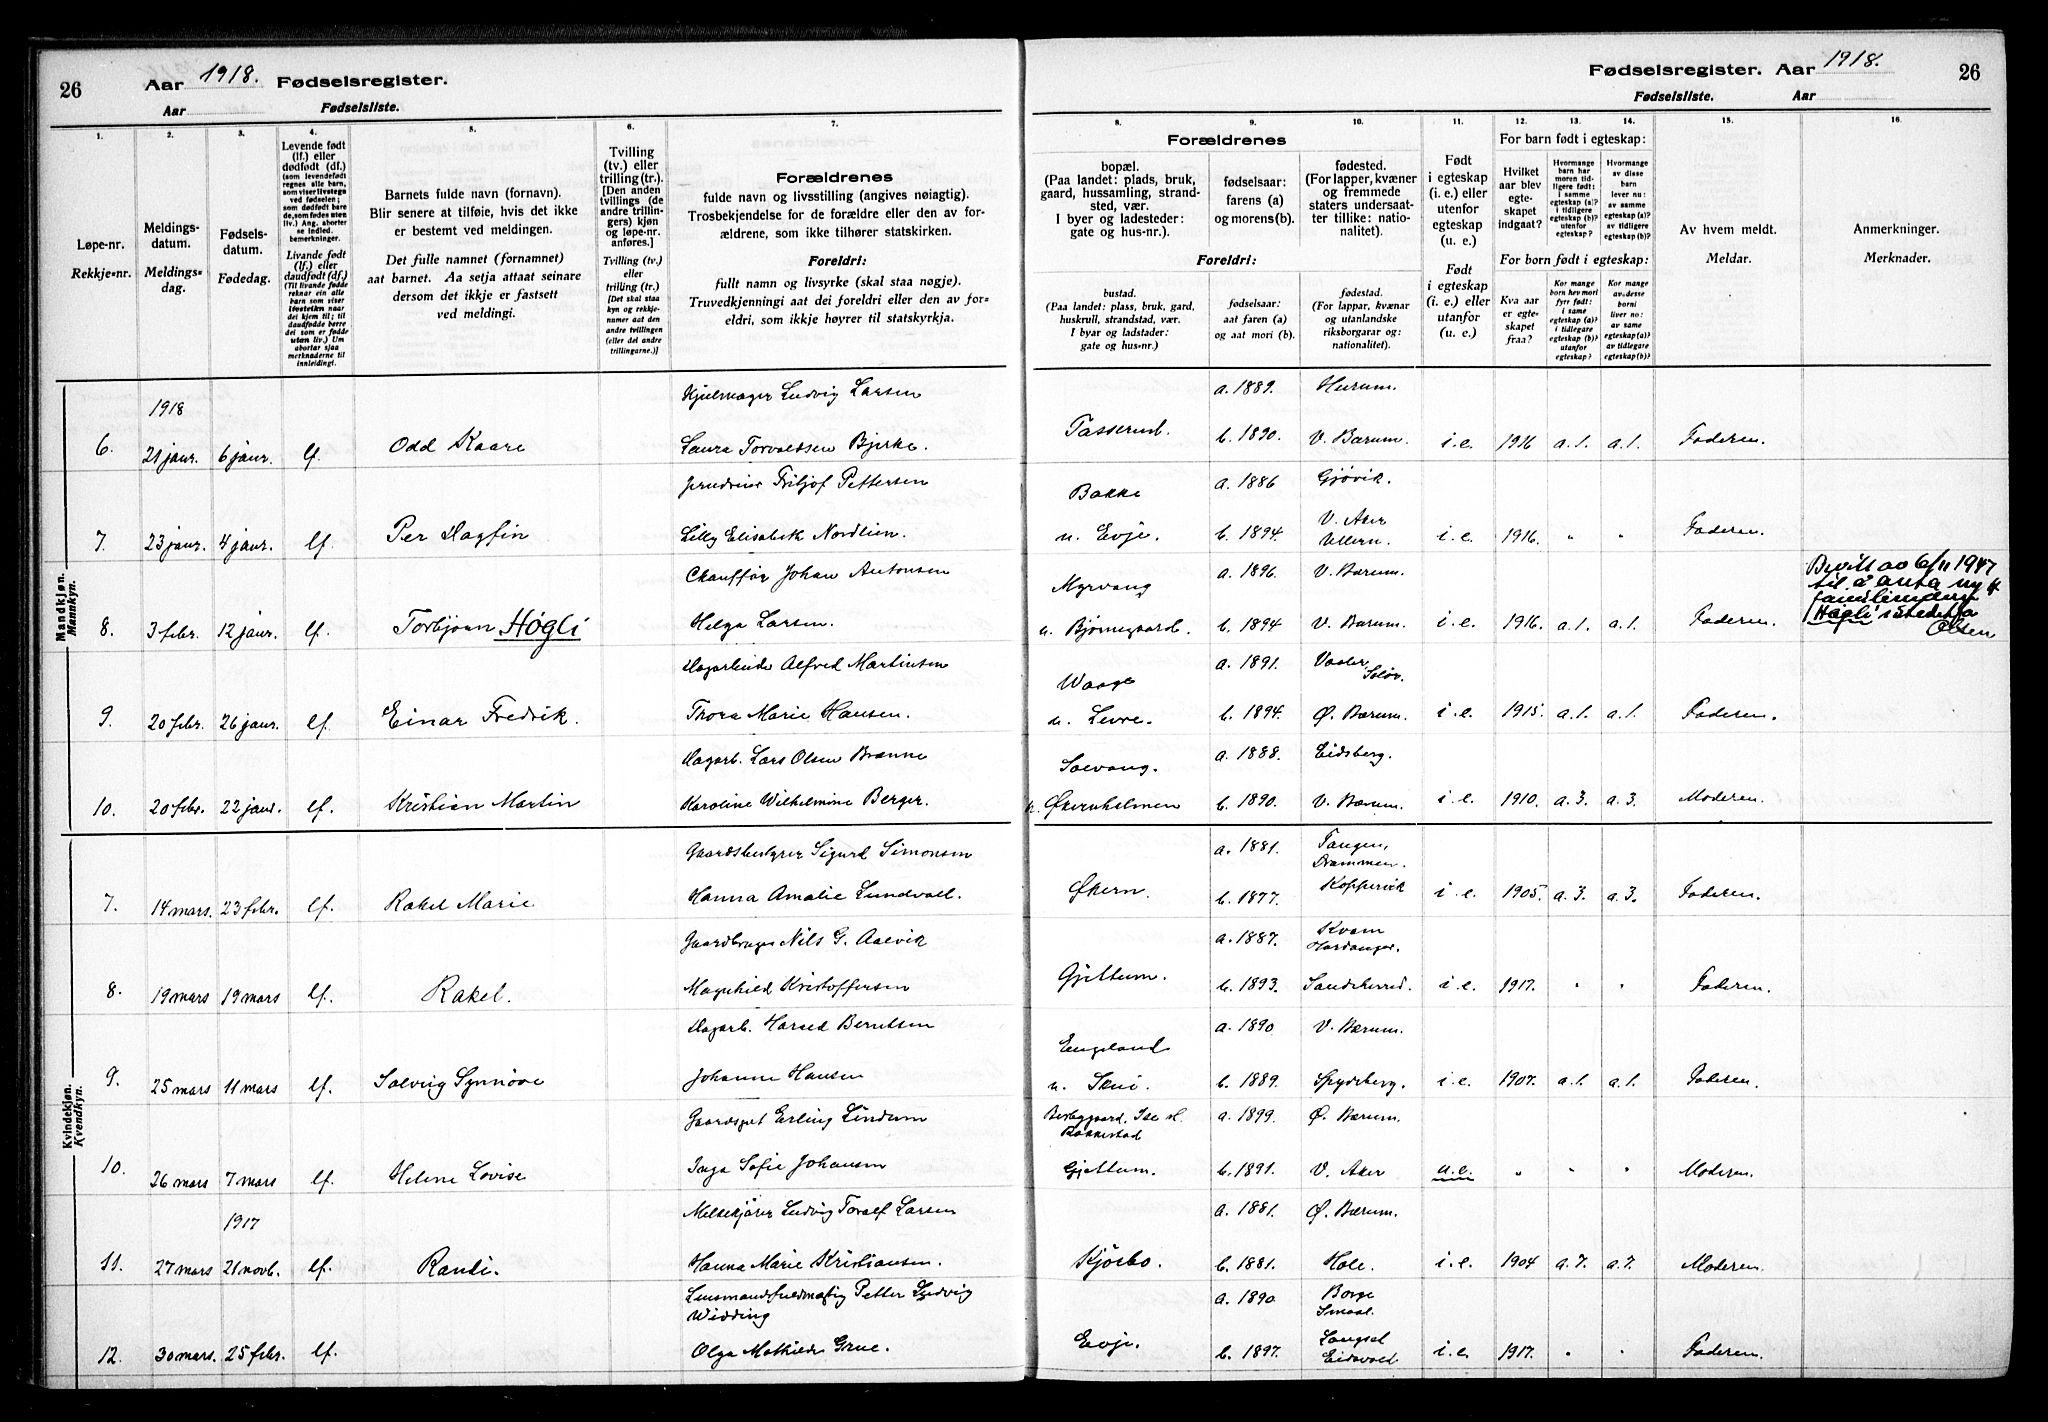 26 Aar 1918. Fødselsregister.
Aar Fødselsliste.
Fødselsregister. Aar 1918. 26
Fødselsliste. Aar
1. 2. 3. 4. 5. 6. 7. 8. 9. 10. 11. 12. 13. 14. 15. 16.
Løpe-nr.
Rekkje-nr.
Meldings-
datum.
Meldings-
dag.
Fødsels-
datum.
Fødedag.
Levende født
(lf.) eller
dødfødt (df.)
Livande fødd
(lf.) eller
daudfødd (df.)
Barnets fulde navn (fornavn).
Blir senere at tilføie, hvis det ikke
er bestemt ved meldingen.
Det fulle namnet (fornamnet)
aat barnet. Aa setja attaat seinare
dersom det ikkje er fastsett
ved meldingi.
Tvilling
(tv.) eller
trilling (tr.).
[Den anden
tvillings (de
andre trillin-
gers) kjøn
og løpe-nr.
anføres.]
Tvilling (tv.)
eller
trilling (tr.)
[Det skal staa
kyn og rekkje-
numer aat den
andre tvillingen
(eller dei andre
trillingarne.)]
Forældrenes
fulde navn og livsstilling (angives nøiagtig).
Trosbekjendelse for de forældre eller den av for-
ældrene, som ikke tilhører statskirken.
Foreldri:
fullt namn og livsyrke (skal staa nøgje).
Truvedkjenningi aat dei foreldri eller den av for-
eldri, som ikkje høyrer til statskyrkja.
Forældrenes
bopæl.
(Paa landet: plads, bruk,
gaard, hussamling, strand-
sted, vær.
I byer og ladesteder:
gate og hus-nr.).
fødselsaar:
farens (a)
og morens(b).
fødested.
(For lapper, kvæner
og fremmede
staters undersaat-
ter tillike: natio-
nalitet).
Foreldri:
bustad.
(Paa landet: plass, bruk, gard,
huskrull, strandstad, vær.
I byar og ladstader:
gate og hus-nr.)
fødselsaar:
aat faren (a)
og aat mori (b).
fødestad.
(For lapper, kvænar
og utanlandske
riksborgarar og:
nationalitet).
Født
i egteskap
(i. e.) eller
utenfor
egteskap
(u. e.)
Født
i egteskap
(i. e.) eller
utanfor
(u. e.)
For barn født i egteskap:
Hvilket
aar blev
egte-
skapet
indgaat?
Hvormange
barn har
moren tid-
ligere født:
i samme
egteskap (a)?
i tidligere
egteskap (b)?
utenfor
egteskap?
Hvormange
av disse
barn
lever nu:
av samme
egteskap (a)?
av tidligere
egteskap (b)?
For born født i egteskap:
Kva aar
er egte-
skapet
fraa?
Kor mange
born hev mori
fyrr født:
i same
egteskap (a)?
i tidlegare
egteskap (b)?
utanfor
egteskap?
Kor mange
av desse
borni
liver no:
av same
egteskap (a)?
av tidlegare
egteskap (b)?
Av hvem meldt.
Meldar.
Anmerkninger.
Merknader.
Mandkjøn.
Mannkyn.
1918 Hjulmager Ludvig Larsen a. 1889. Hurum.
6. 21 janr. 6 janr. lf. Odd Kaare Laura Torvaldsen Bjerke. Tasserud. b. 1890. V. Bærum. i.e. 1916 a.1. a.1. Faderen.
Fritjof Pettersen Bakke a. 1886 Gjøvik.
7. 23 janr. 4 janr. lf. Per Dagfin Lilly Elisabeth Nordlien. n. Evje. b. 1894. V. Aker i.e. 1916. " " Faderen.
Chauffør Johan Antonsen Myrvang a. 1896. V. Bærum.
8. 3 febr. 12 janr. lf. Torbjørn Høgli Helga Larsen. n. Bjørnegaard. b. 1894 V. Bærum. i.e. 1916. a.1. a.1. Faderen.
Bevilt av 6/11 1947
til å anta nytt
familienavn
Høgli istedetfor
Olsen
Dagarbeider Alfred Martinsen Waage a. 1891. Vaaler, Solør.
9. 20 febr. 26 janr. lf. Einar Fredrik. Thora Marie Hansen. n. Levre. b. 1894. Ø. Bærum. i.e. 1915. a.1. a.1. Faderen.
Dagarb. Lars Olsen Brænne Solvang. a. 1888. Eidsberg.
10. 20 febr. 22 janr. lf. Kristian Martin Karoline Wilhelmine Berger. n. Økernholmen b. 1890. V. Bærum. i.e. 1910. a.3. a.3. Moderen.
Kvindekjøn.
Kvendkyn.
Gaardsbestyrer Sigurd Simonsen a. 1881. Tangen, Drammen.
7. 14 mars. 23 febr. lf. Rakel Marie Hanna Amalie Lundvall. Økern. b. 1877. Koppervik i e. 1905. a.3. a.3. Faderen.
Gaardbruger Nils G. Aalvik a. 1887. Kvam Hardanger.
8. 19 mars 19 mars lf. Rakel. Magnhild Kristoffersen Gjettum. b. 1893. Sandeherred. i.e. 1917. " " Faderen.
Dagarb. Harald Berntsen Engeland a. 1890 V. Bærum.
9. 25 mars 11 mars lf. Solveig Synnöve Johanne Hansen n. Skui. b. 1889. Spydeberg. i.e. 1907. a.1. a.1. Faderen.
Gaardsgut Erling Lindum Bakkestad a. 1899. Ø. Bærum.
10. 26 mars 7 mars lf. Helene Lovise Inga Sofie Johansen Gjettum. b. 1891. V. Aker u.e. " " " Moderen.
1917 Melkekjører Ludvig Toralf Larsen a. 1881. Ø. Bærum.
11. 27 mars 21 novb. lf. Randi. Hanna Marie Kristiansen. Kjørbo. b. 1881. Hole. i.e. 1904 a.7. a.7. Moderen.
Lensmandsfuldmægtig Petter Ludvig a. 1890. Borge Smaal.
Widding
12. 30 mars. 25 febr. lf. Olga Mathilde Grue. Evje. b. 1897. Langset Eidsvold i.e. 1917. " " Faderen.